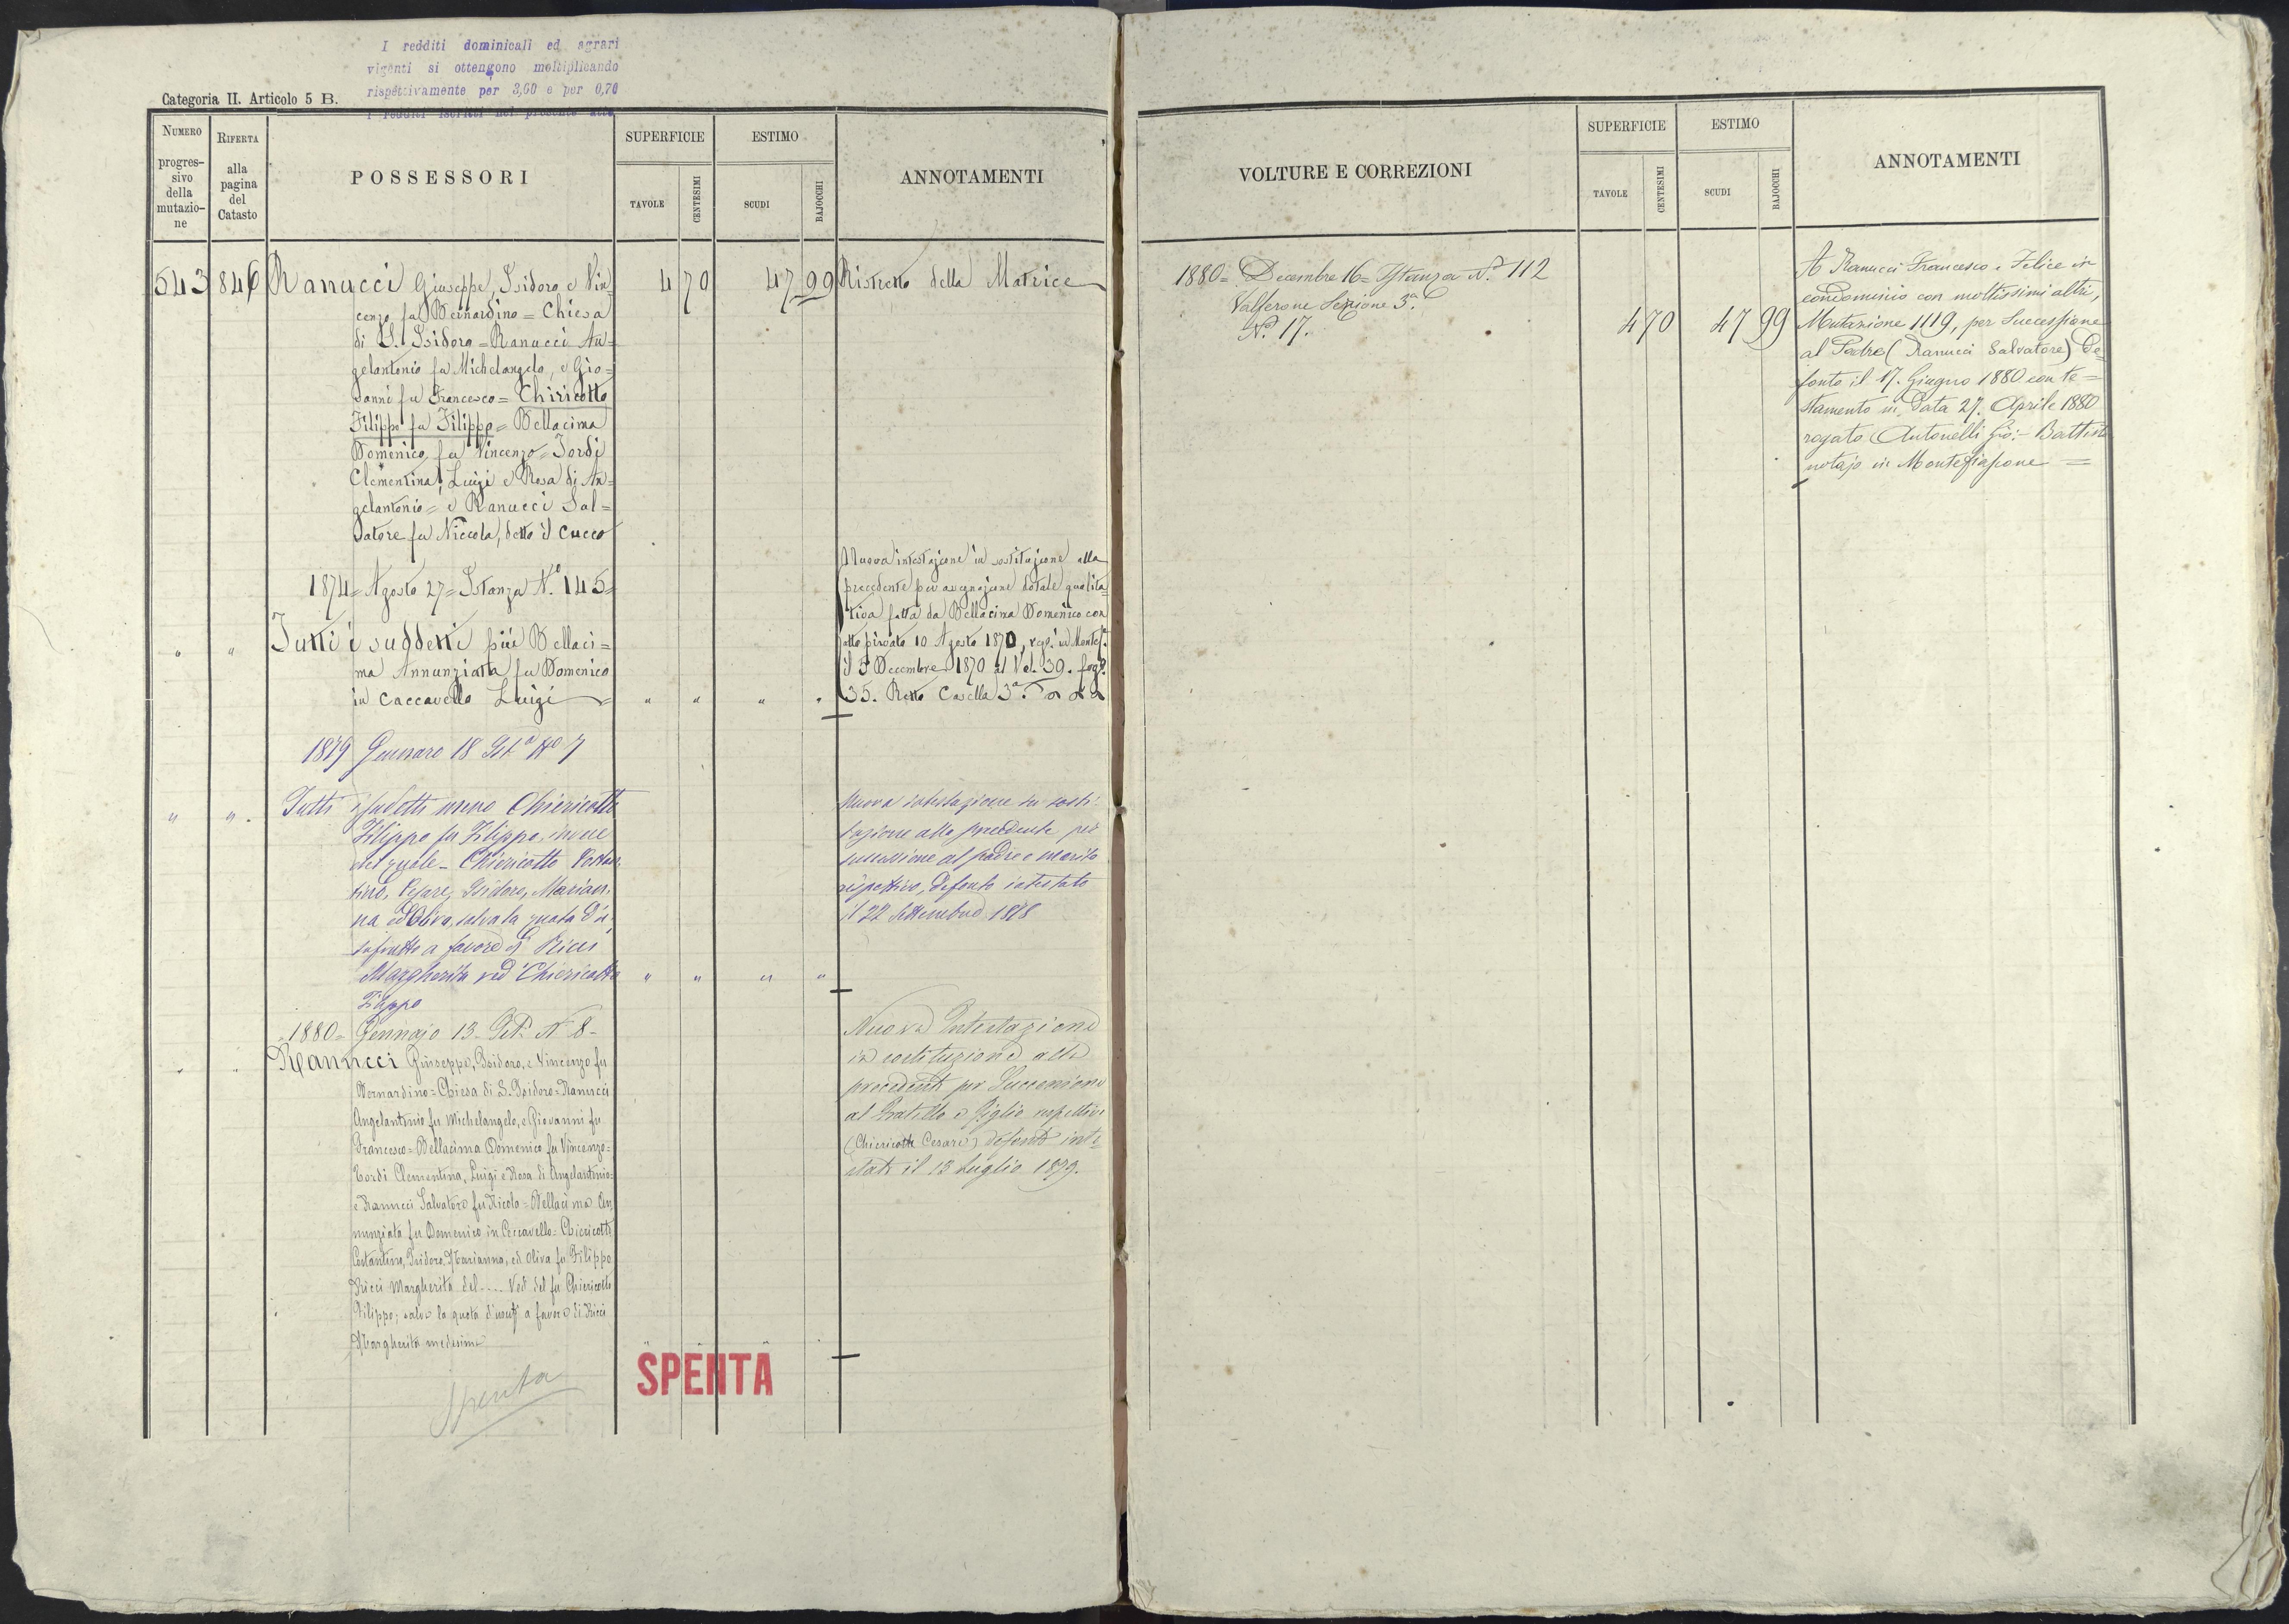 I redditi dominicali ed agrari
vigenti si ottengono moltiplicando
rispettivamente per 3,60 e per 0,70
i redditi iscritti nel presente atto
Categoria II. Articolo 5 B.
NUMERO progressivo della mutazione
RIFERTA alla pagina del Catasto
POSSESSORI
SUPERFICIE
TAVOLE
CENTESIMI
ESTIMO
SCUDI
BAJOCCHI
ANNOTAMENTI
543 846 Ranucci Giuseppe, Isidoro e Vin= 4 70 47 99 Ristretto della Matrice
cenzo fu Bernardino = Chiesa
di S. Isidoro = Ranucci An=
gelantonio fu Michelangelo, e Gio=
vanni fu Francesco = Chiricotto
Filippo fu Filippo = Bellacima
Domenico fu Vincenzo = Tordi
Clementina, Luigi e Rosa di An=
gelantonio = e Ranucci Sal=
vatore fu Niccola, detto il Cucco
1874 = Agosto 27 = Istanza N.º 145 =
" " Tutti i suddetti più Bellaci=
ma Annunziata fu Domenico
in Caccavello Luigi " " " "
Nuova intestazione in sostituzione alla
precedente per assegnazione dotale
fatta da Bellacima Domenico con
atto privato 10 Agosto 1870, reg. in Montef.
il 3 Decembre 1870 al Vol. 39. fog.
35. Retto Casella 3ª.
1879 Gennaro 18 Ist.ª Nº 7
" " Tutti i sudetti meno Chiericotto
Filippo fu Filippo, invece
del quale - Chiericotto Costan-
tino, Cesare, Isidoro, Marian-
na ed Oliva, salva la quota d'u-
sufrutto a favore di Ricci
Margherita ved. Chiericotto " " " "
Filippo
Nuova intestazione in sosti-
tuzione alla precedente per
successione al padre e marito
rispettivo, defonto intestato
il 22 Settembre 1878
1880 = Gennajo 13 - Ist. N. 8 -
" " Ranucci Giuseppe, Isidoro, e Vincenzo fu
Bernardino = Chiesa di S. Isidoro = Ranucci
Angelantonio fu Michelangelo, e Giovanni fu
Francesco = Bellacima Domenico fu Vincenzo =
Tordi Clementina, Luigi e Rosa di Angelantonio =
e Ranucci Salvatore fu Nicola = Bellacima An
nunziata fu Domenico in Caccavello = Chiericotti
Costantino, Isidoro, Marianna, ed Oliva fu Filippo
Ricci Margherita del .... Ved. del fu Chiericotto
Filippo; salva la quota d'usuf. a favore di Ricci
Margherita medesima " " "
Nuova Intestazione
in sostituzione alla
precedente per Successione
al Fratello e Figlio respettivi
(Chiericotti Cesare) defonto inte
stato il 13 Luglio 1879.
Spenta
SPENTA
VOLTURE E CORREZIONI
SUPERFICIE
TAVOLE
CENTESIMI
ESTIMO
SCUDI
BAJOCCHI
ANNOTAMENTI
1880 = Decembre 16 = Istanza N.º 112
Valserone Sezione 3ª.
Nº 17. 4 70 47 99
A Ranucci Francesco e Felice in
condominio con moltissimi altri,
Mutazione 1119, per Successione
al Padre (Ranucci Salvatore) De=
fonto il 17. Giugno 1880 con te=
stamento in Data 27. Aprile 1880
rogato Antonelli Gio: Battista
notajo in Montefiascone =